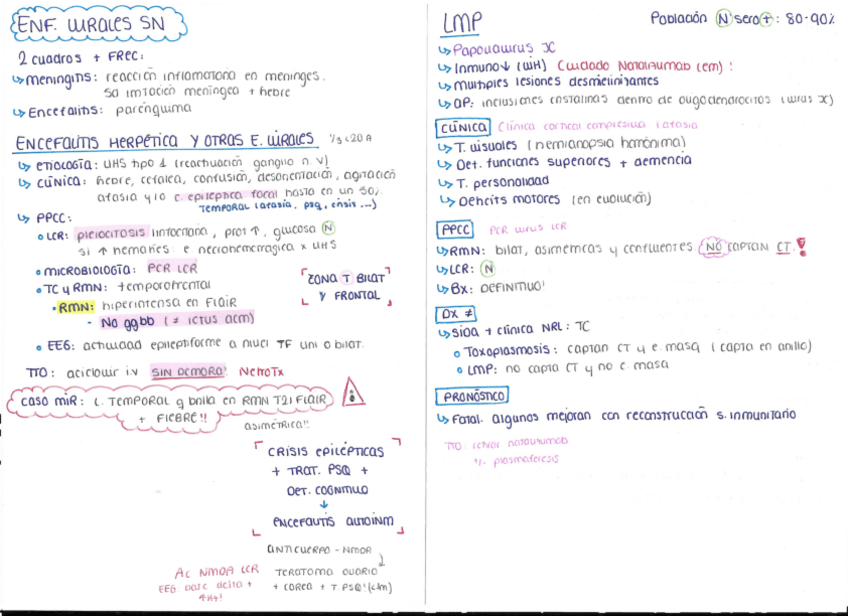 ENF. VIRALES SN
2 cuadros + FREC:
↳ meningitis: reacción inflamatoria en meninges.
sd irritación meníngea + fiebre
↳ Encefalitis: parénquima
ENCEFALITIS HERPÉTICA Y OTRAS E. VIRALES 1/3 <20A
↳ ETIOLOGÍA: VHS tipo 1 (reactivación ganglio n. V)
↳ CLÍNICA: fiebre, cefalea, confusión, desorientación, agitación
afasia y/o c. epiléptica focal hasta en un 50%.
TEMPORAL (afasia, psq, crisis ...)
↳ PPCC:
• LCR: pleiocitosis linfocitaria, prot ↑, glucosa N
si ↑ hematíes: e necrohemorrágica x VHS
• MICROBIOLOGÍA: PCR LCR
• TC y RMN: temporofrontal
• RMN: hiperintensa en FLAIR
- No ggbb (≠ ictus acm)
ZONA T BILAT
Y FRONTAL
• EEG: actividad epileptiforme a nivel TF uni o bilat.
TTO: aciclovir i.v SIN DEMORA! NefroTx
caso MIR: L. TEMPORAL q brilla en RMN T2/FLAIR
+ FIEBRE!!
ASIMÉTRICA!!
CRISIS EPILÉPTICAS
+ TRAT. PSQ +
DET. COGNITIVO
↓
ENCEFALITIS AUTOINM
ANTICUERPO - NMDR
AC NMDA LCR
TERATOMA OVARIO
EEG: delta +
+ COREA + T. PSQ!
LMP
Población N sero +: 80-90%
↳ Papovavirus JC
↳ Inmuno↓ (VIH) Cuidado Natalizumab (em)!
↳ Múltiples lesiones desmielinizantes
↳ AP: inclusiones cristalinas dentro de oligodendrocitos (virus JC)
CLÍNICA Clínica cortical compresiva (afasia
↳ T. visuales (hemianopsia homónima)
↳ Det. funciones superiores + demencia
↳ T. personalidad
↳ Déficits motores (en evolución)
PPCC PCR virus LCR
↳ RMN: bilat, asimétricas y confluentes NO CAPTAN CT.!
↳ LCR: N
↳ Bx: DEFINITIVO!
DX ≠
↳ SIDA + clínica NRL: TC
• Toxoplasmosis: captan CT y e. masa (capta en anillo)
• LMP: no capta CT y no e. masa
PRONÓSTICO
↳ Fatal. algunos mejoran con reconstrucción s. inmunitario
TTO: retirar natalizumab
+/- plasmaféresis